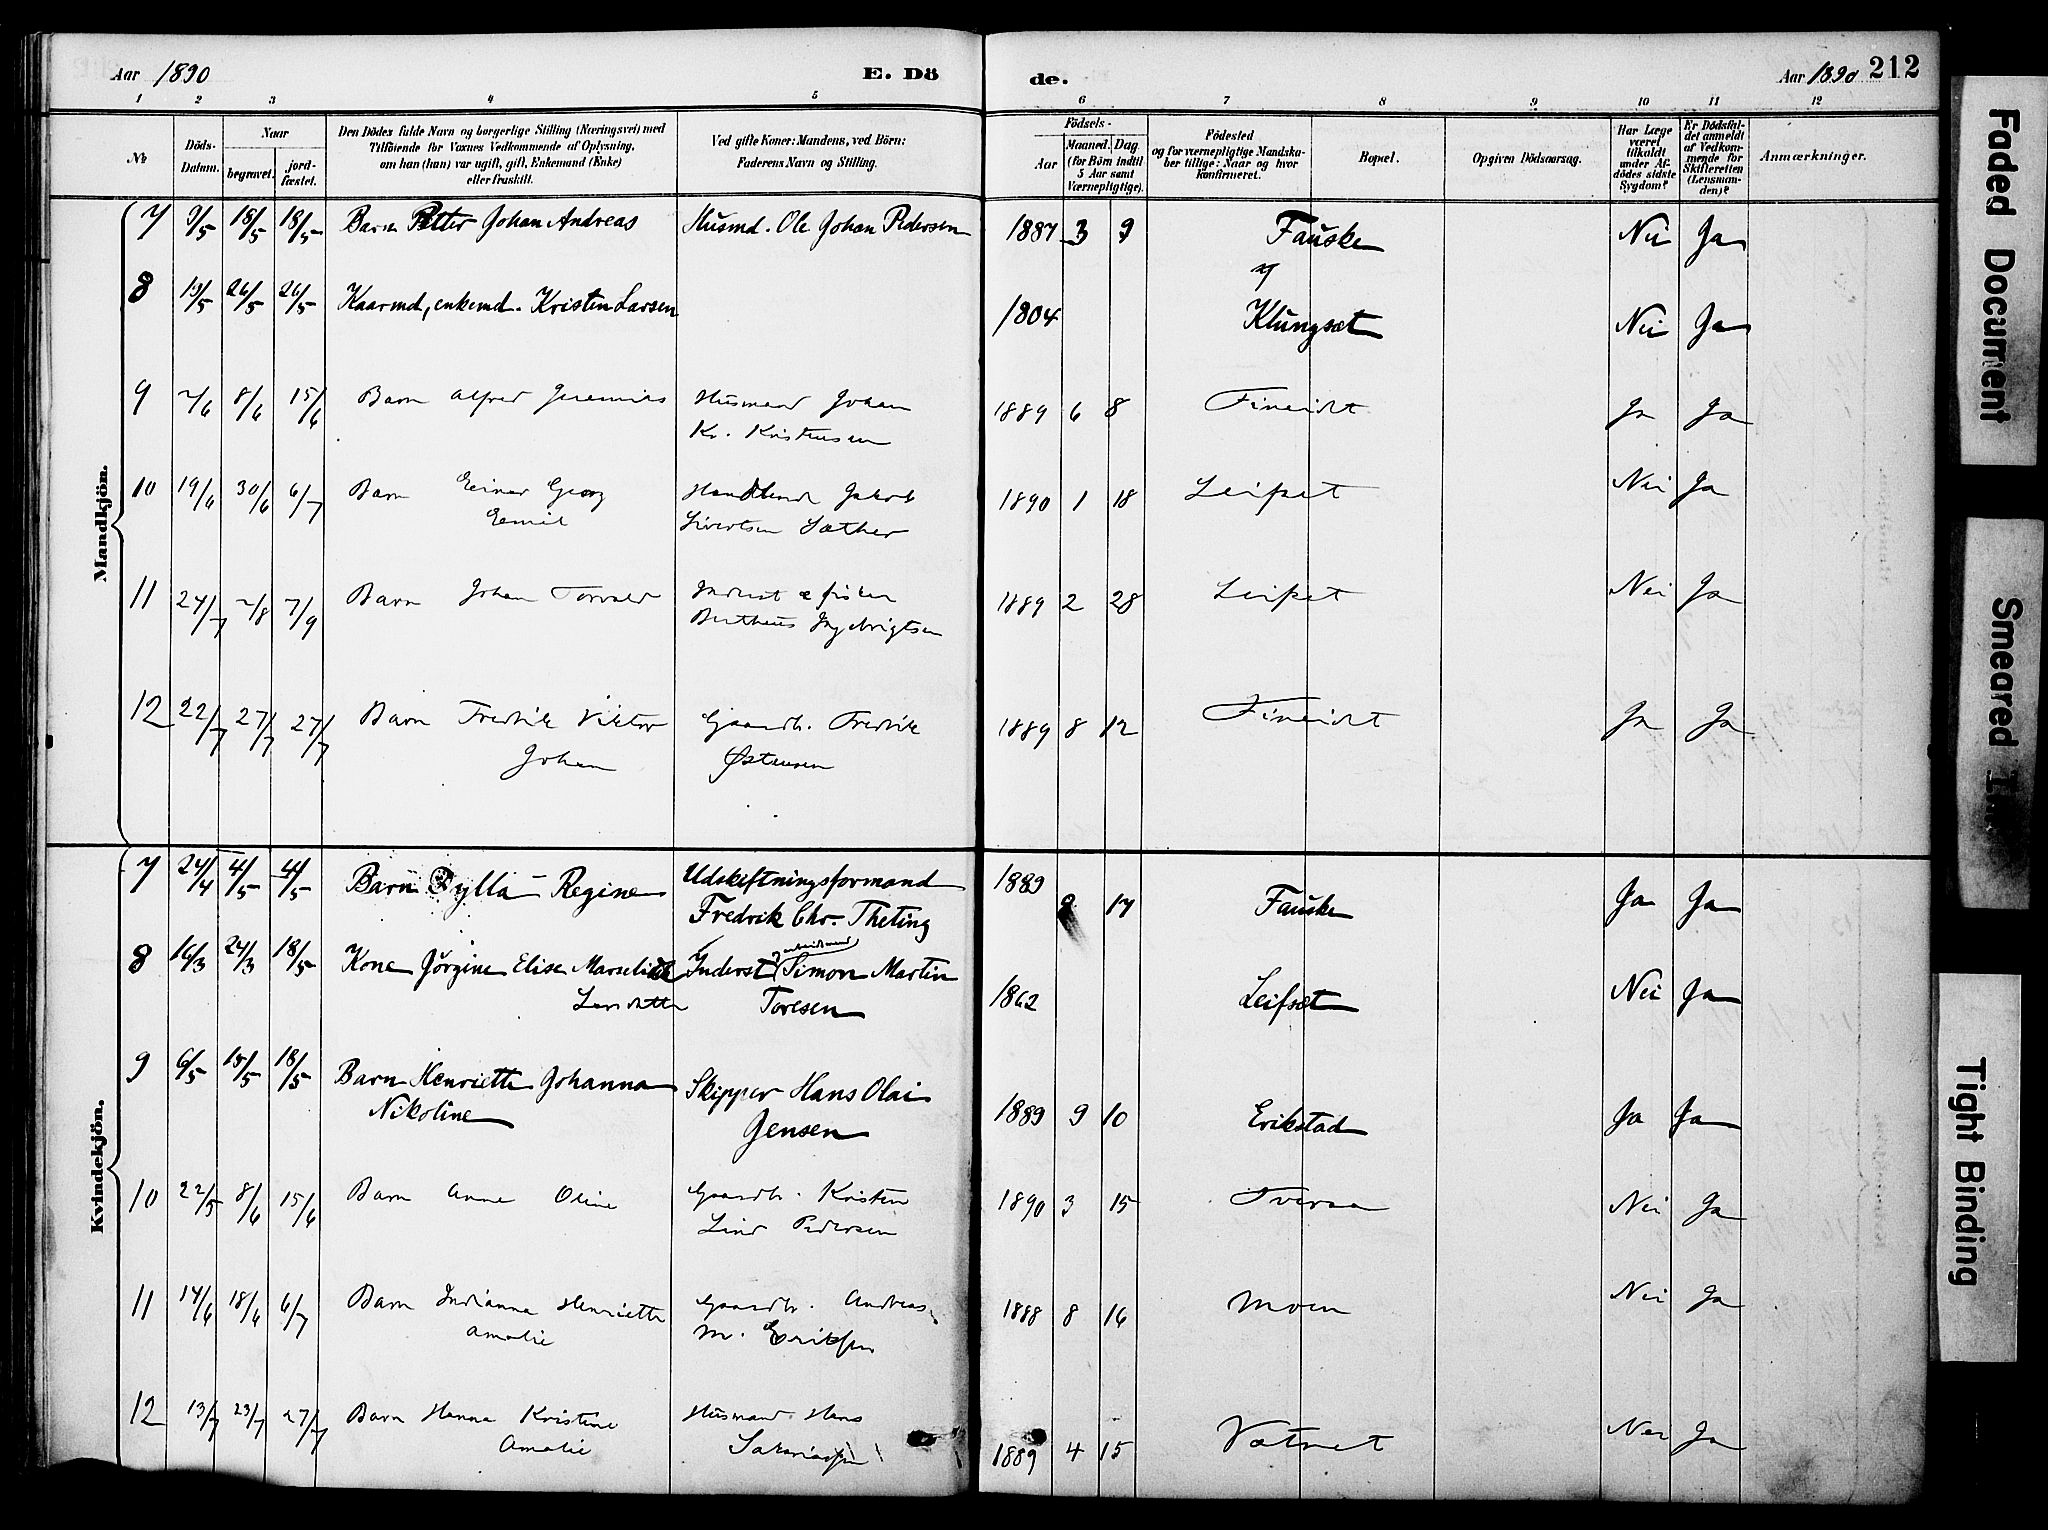 Aar 1890
E. Dö
de.
Aar 1890 212
1 2 3 4 5 6 7 8 9 10 11 12
№
Döds-
Datum.
Naar
begravet.
jord-
fæstet.
Den Dödes fulde Navn og borgerlige Stilling (Næringsvei) med
Tilföiende for Voxnes Vedkommende af Oplysning,
om han (hun) var ugift, gift, Enkemand (Enke)
eller fraskilt.
Ved gifte Koner: Mandens, ved Börn:
Faderens Navn og Stilling.
Födsels-
Aar
Maaned. Dag
(for Börn indtil
5 Aar samt
Værnepligtige).
Födested
og for værnepligtige Mandska-
ber tillige: Naar og hvor
konfirmeret.
Bopæl.
Opgiven Dödsaarsag.
Har Læge
været
tilkaldt
under Af-
dödes sidste
Sygdom?
Er Dödsfal-
det anmeldt
af Vedkom-
mende for
Skifteretten
(Lensman-
den)?
Anmærkninger.
Mandkjön.
7 9/5 18/5 18/5 Barn Petter Johan Andreas Husmd. Ole Johan Pedersen 1887 3 9 Fauske Nei Ja
8 13/5 26/5 26/5 Kaarmd, enkemd. Kristen Larsen 1804 Klungset Nei Ja
9 2/6 8/6 15/6 Barn Alfred Jeremias Husmand Johan 1889 6 8 Fineidet Ja Ja
Kr. Kristensen
10 19/6 30/6 6/7 Barn Einar Georg Handlende Jakob 1890 1 18 Leifset Nei Ja
Emil Sivertsen Sæther
11 24/7 2/8 7/9 Barn Johan Torvald Inderst & fisker 1889 2 28 Leifset Nei Ja
Bertheus Ingebrigtsen
12 22/7 27/7 27/7 Barn Fredrik Viktor Gaardbr. Fredrik 1889 8 12 Fineidet Ja Ja
Johan Østensen
Kvindekjön.
7 24/4 4/5 4/5 Barn Sylla Regine Udskiftningsformand 1889 8 17 Fauske Ja Ja
Fredrik Chr. Theting
8 16/3 24/3 18/5 Kone Jørgine Elise Inderst & arbeidsmand Simon Martin 1862 Leifset Nei Ja
Toresen
9 6/5 15/5 18/5 Barn Henriette Johanna Skipper Hans Olai 1889 9 10 Erikstad Ja Ja
Nikoline Jensen
10 22/5 8/6 15/6 Barn Anne Oline Gaardbr. Kristen 1890 3 15 Tveraa Nei Ja
Lind Pedersen
11 14/6 18/6 6/7 Barn Indianna Henriette Gaardbr. Andreas 1888 8 16 Moen Nei Ja
Amalie M. Eriksen
12 13/7 23/7 27/7 Barn Hanna Kristine Husmand Hans 1889 4 15 Vatnet Nei Ja
Amalie Sakariassen
Faded Document
Smeared
Tight Binding